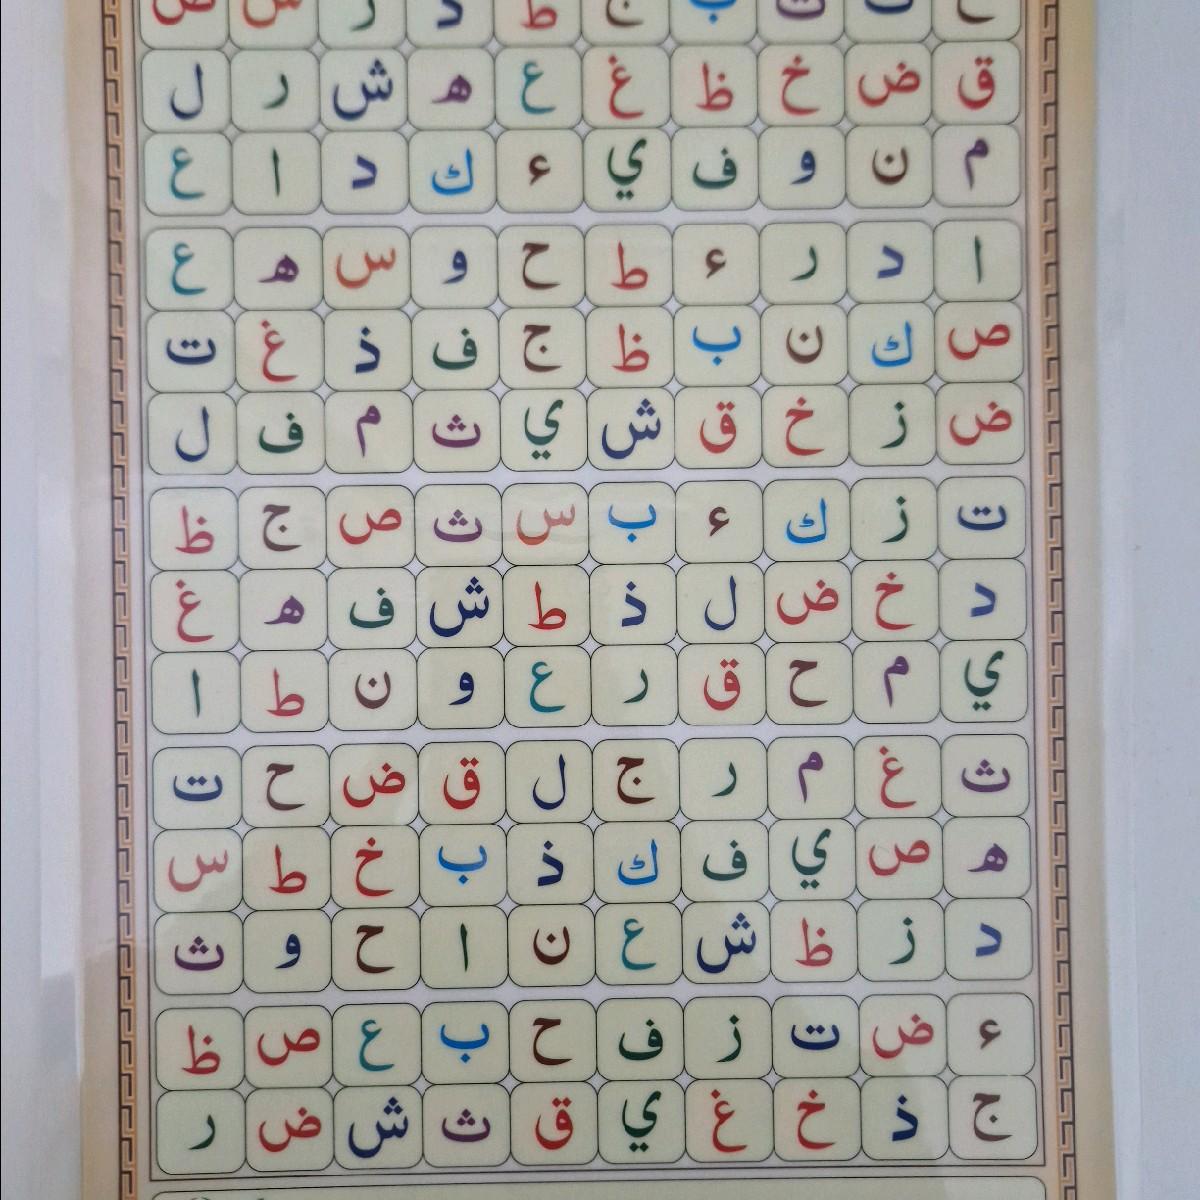 ح ث ت ب ج ط د ر س ص
ق ض خ ظ غ ع ه ش ر ل
م ن و ف ي ء ك د ا ع
ا د ر ء ط ح و س ه ع
ص ك ن ب ظ ج ف ذ غ ت
ض ز خ ق ش ي ث م ف ل
ت ز ك ء ب س ث ص ج ظ
د خ ض ل ذ ط ش ف ه غ
ي م ح ق ر ع و ن ط ا
ث غ م ر ج ل ق ض ح ت
ه ص ي ف ك ذ ب خ ط س
د ز ظ ش ع ن ا ح و ث
ء ض ت ز ف ح ب ع ص ظ
ج ذ خ غ ي ق ث ش ض ر